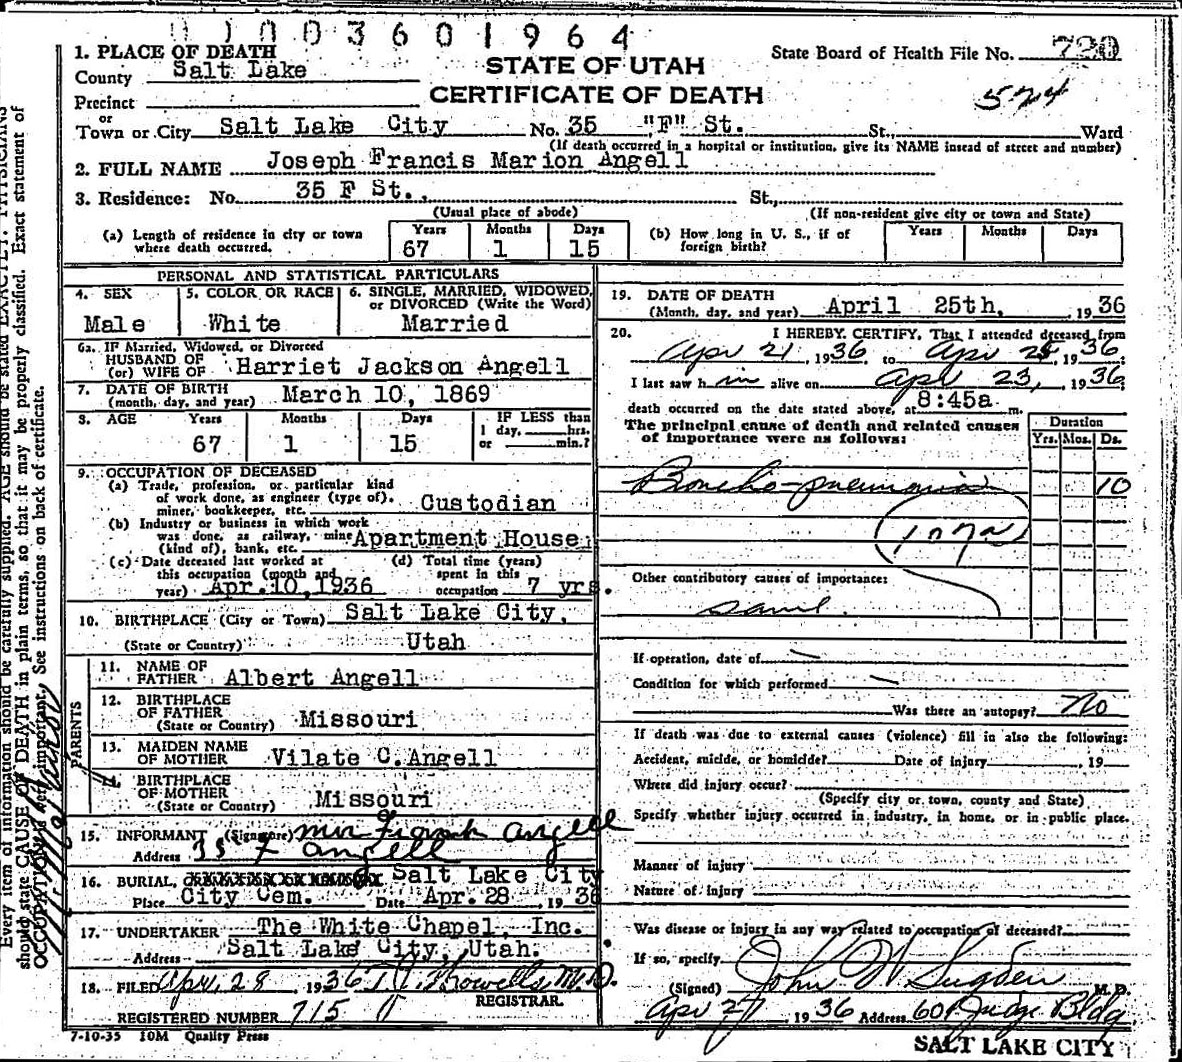 01003601964
1. PLACE OF DEATH
County Salt Lake
STATE OF UTAH
CERTIFICATE OF DEATH
State Board of Health File No. 720
524
Precinct
or
Town or City Salt Lake City No. 35 "F" St. St., Ward
(If death occurred in a hospital or institution, give its NAME instead of street and number)
2. FULL NAME Joseph Francis Marion Angell
3. Residence: No. 35 F St., St.,
(Usual place of abode) (If non-resident give city or town and State)
(a) Length of residence in city or town where death occurred. Years 67 Months 1 Days 15
(b) How long in U. S., if of foreign birth? Years Months Days
PERSONAL AND STATISTICAL PARTICULARS
4. SEX Male
5. COLOR OR RACE White
6. SINGLE, MARRIED, WIDOWED, or DIVORCED (Write the Word) Married
6a. IF Married, Widowed, or Divorced
HUSBAND OF
(or) WIFE OF Harriet Jackson Angell
7. DATE OF BIRTH
(month, day, and year) March 10, 1869
8. AGE Years 67 Months 1 Days 15
IF LESS than
1 day, hrs.
or min.?
9. OCCUPATION OF DECEASED
(a) Trade, profession, or particular kind
of work done, as engineer (type of),
miner, bookkeeper, etc. Custodian
(b) Industry or business in which work
was done, as railway, mine
(kind of), bank, etc. Apartment House
(c) Date deceased last worked at
this occupation (month and
year) Apr. 10, 1936
(d) Total time (years)
spent in this
occupation 7 yrs.
10. BIRTHPLACE (City or Town) Salt Lake City,
(State or Country) Utah
PARENTS
11. NAME OF
FATHER Albert Angell
12. BIRTHPLACE
OF FATHER
(State or Country) Missouri
13. MAIDEN NAME
OF MOTHER Vilate C. Angell
14. BIRTHPLACE
OF MOTHER
(State or Country) Missouri
15. INFORMANT (Signature) Mrs Frank Angell
Address 35 F Angell
16. BURIAL, Salt Lake City
Place City Cem. Date Apr. 28, 1936
17. UNDERTAKER The White Chapel, Inc.
Address Salt Lake City, Utah.
18. FILED Apr. 28, 1936 M.D.
REGISTRAR.
REGISTERED NUMBER 715
7-10-35 10M Quality Press
19. DATE OF DEATH
(Month, day, and year) April 25th, 1936
20. I HEREBY CERTIFY, That I attended deceased from
Apr 21, 1936 to Apr 25, 1936;
I last saw him alive on Apr 23, 1936,
death occurred on the date stated above, at 8:45a m.
The principal cause of death and related causes
of importance were as follows:
Duration
Yrs. Mos. Ds.
Broncho-pneumonia 10
107a
Other contributory causes of importance:
same.
If operation, date of
Condition for which performed
Was there an autopsy? No
If death was due to external causes (violence) fill in also the following:
Accident, suicide, or homicide? Date of injury , 19
Where did injury occur?
(Specify city or town, county and State)
Specify whether injury occurred in industry, in home, or in public place.
Manner of injury
Nature of injury
Was disease or injury in any way related to occupation of deceased?
If so, specify
(Signed) John W Sugden M.D.
Apr 27, 1936 Address 601 Judge Bldg
SALT LAKE CITY
Every item of information should be carefully supplied. AGE should be stated EXACTLY. PHYSICIANS
should state CAUSE OF DEATH in plain terms, so that it may be properly classified. Exact statement of
OCCUPATION is very important. See instructions on back of certificate.